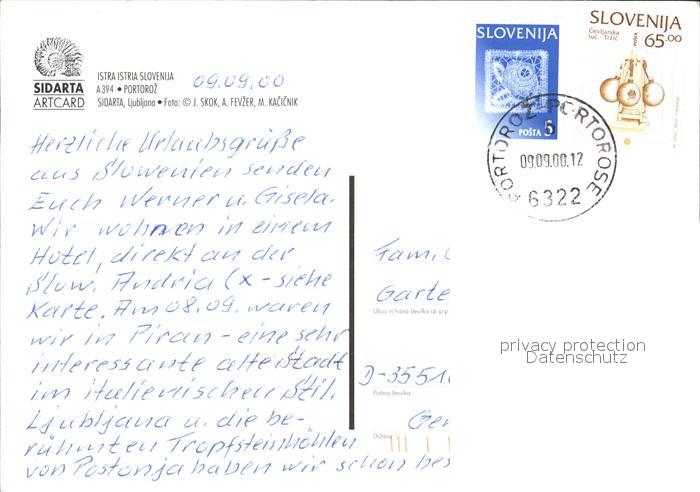 SLOVENIJA
POŠTA 5
SLOVENIJA
Čevljarska
luč - Tržič
POŠTA
65.00
SIDARTA
ARTCARD
ISTRA ISTRIA SLOVENIJA
A394 • PORTOROŽ
SIDARTA, Ljubljana • Foto: © J. SKOK, A. FEVŽER, M. KAČIČNIK
09.09.00
PORTOROŽ-PORTOROSE
09.09.00.12
6322
Herzliche Urlaubsgrüße
aus Slowenien senden
Euch Werner u. Gisela.
Wir wohnen in einem
Hotel, direkt an der
Slow. Andria (x - siehe
Karte. Am 08.09. waren
wir in Piran - eine sehr
interessante alte Stadt
im italienischen Stil.
Ljubljana u. die be-
rühmten Tropfsteinhöhlen
von Postonja haben wir schon bes
Fam.
Garte
Ulica in hišna številka ali p.p.
D-3551
Poštna številka
Država
privacy protection
Datenschutz